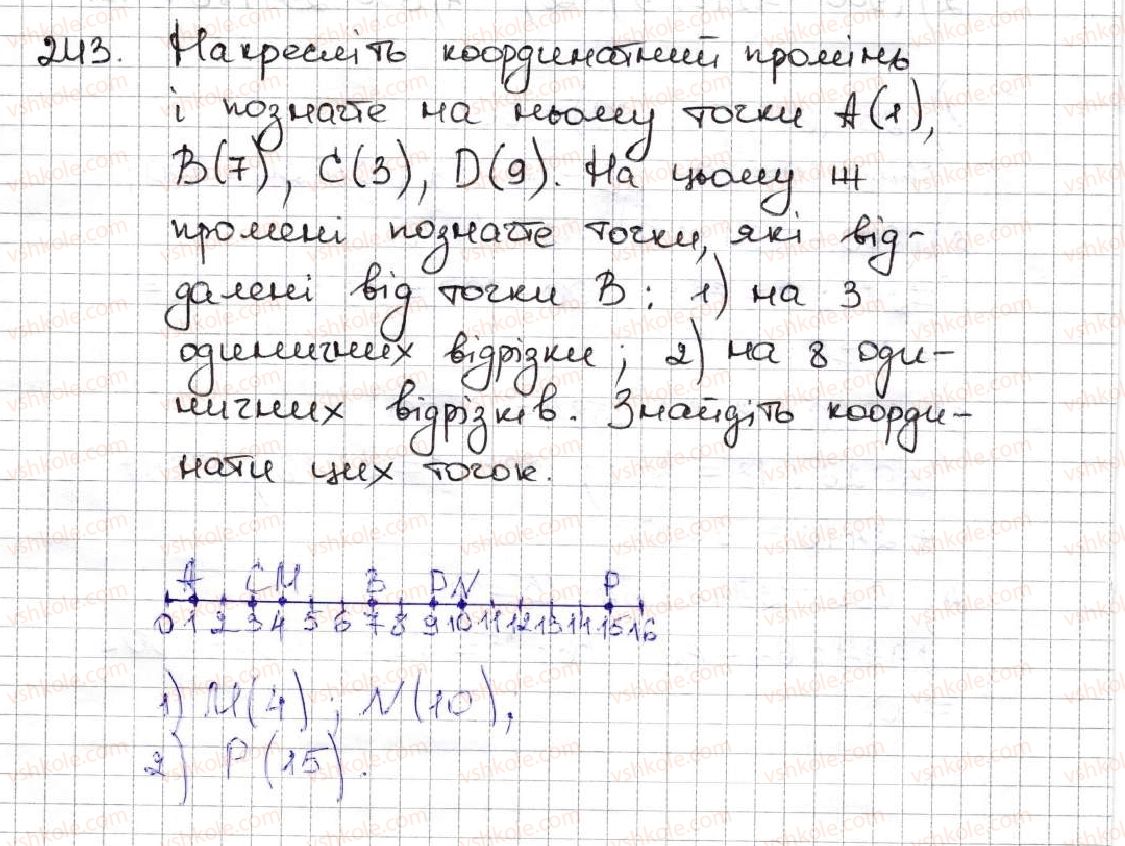 243. Накресліть координатний промінь
і позначте на ньому точки A(1),
B(7), C(3), D(9). На цьому ж
промені позначте точки, які від-
далені від точки B: 1) на 3
одиничних відрізки; 2) на 8 оди-
ничних відрізків. Знайдіть коорди-
нати цих точок.
A C M B D N P
0 1 2 3 4 5 6 7 8 9 10 11 12 13 14 15 16
1) M(4); N(10);
2) P(15).